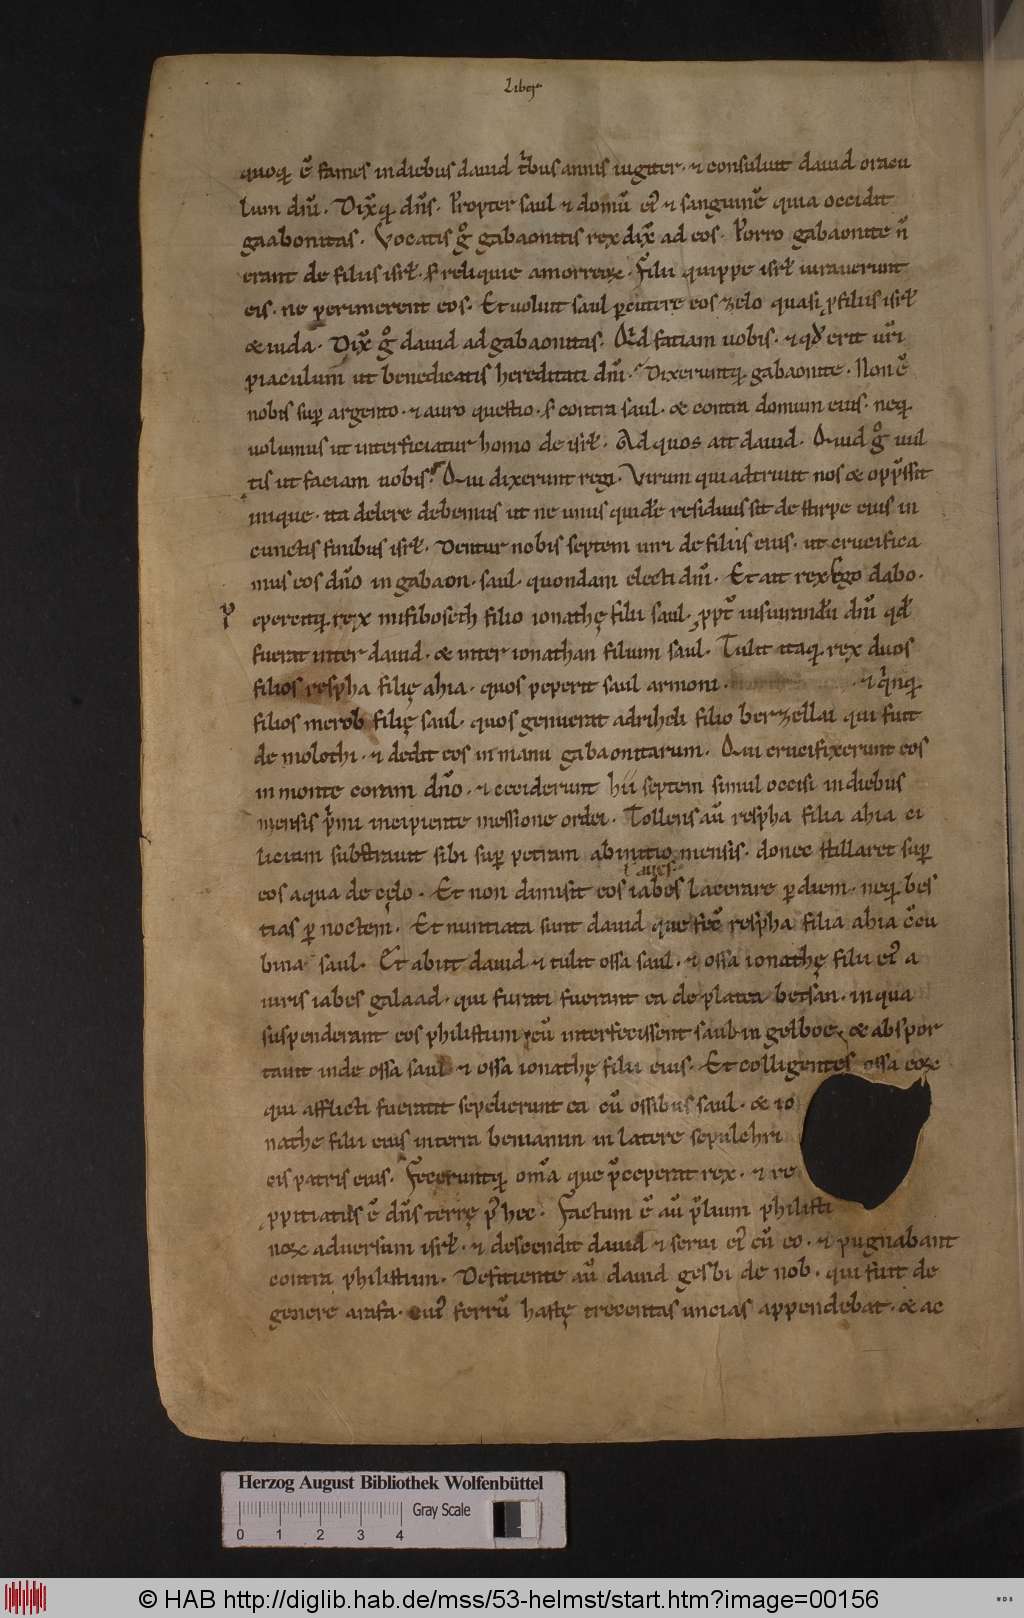 Liber
quoq; ē fames in diebus dauid t̾bus annis iugiter · ⁊ consuluit dauid oracu
lum dn̄i · Dix̄q; dn̄s · Propter saul ⁊ domū ei᷒ ⁊ sanguinē quia occidit
gaabonitas · Vocatis gͦ gabaonitis rex dix̄ ad eos · Porro gabaonite n̄
erant de filiis isrł · s; reliquie amorreoꝝ · Filii quippe isrł iurauerunt
eis · ne perimerent eos · Et uoluit saul ꝑcutere eos zelo quasi ꝓ filiis isrł
⁊ iuda · Dix̄ gͦ dauid ad gabaonitas · Qͥd faciam uobis · ⁊ qd̄ erit ur̄i
piaculum ut benedicatis hereditati dn̄i · Dixeruntq; gabaonite · Non ē
nobis suꝑ argento · ⁊ auro questio · s; contra saul · ⁊ contra domum eius · neq;
uolumus ut interficiatur homo de isrł · Ad quos ait dauid · Quid gͦ uul
tis ut faciam uobis · Qui dixerunt regi · Virum qui adtriuit nos ⁊ opp̄ssit
inique · ita delere debemus ut ne unus quidē residuus sit de stirpe eius in
cunctis finibus isrł · Dentur nobis septem uiri de filiis eius · ut crucifiga
mus eos dn̄o in gabaon · saul · quondam electi dn̄i · Et ait rex Ego dabo ·
epercitq; rex mifiboseth filio ionathę filii saul · ꝓpt̄ iusiurandū dn̄i qd̄
fuerat inter dauid · ⁊ inter ionathan filium saul · Tulit itaq; rex duos
filios respha filię ahia · quos peperit saul armoni · ⁊ qͥnq;
filios merob filię saul · quos genuerat adriheli filio berzellai qui fuit
de molothi · ⁊ dedit eos in manu gabaonitarum · Qui crucifixerunt eos
in monte coram dn̄o · ⁊ ceciderunt hii septem simul occisi in diebus
mensis p̄mi incipiente messione ordei · Tollens aū respha filia ahia ci
licium substrauit sibi suꝑ petram ab initio mensis · donec stillaret suꝑ
aues
eos aqua de cęlo · Et non dimisit eos iabes lacerare ꝑ diem · neq; bes
tias ꝑ noctem · Et nuntiata sunt dauid que fec̄ respha filia ahia c̄cu
bina saul · Et abiit dauid ⁊ tulit ossa saul · ⁊ ossa ionathę filii ei᷒ a
uiris iabes galaad · qui furati fuerant ea de platea betsan · in qua
suspenderant eos philistiim cū interfecissent saul in gelboe · ⁊ abspor
tauit inde ossa saul ⁊ ossa ionathę filii eius · Et colligentes ossa eoꝝ
qui afflicti fuerant sepelierunt ea cū ossibus saul · ⁊ io
nathe filii eius in terra beniamin in latere sepulchri
cis patris eius · Feceruntq; om̄a que p̄ceperat rex · ⁊ re
ppitiatus ē dn̄s terrę p̄ hec · Factum ē aū p̄lium philisti
noꝝ aduersum isrł · ⁊ descendit dauid ⁊ serui ei᷒ cū eo · ⁊ pugnabant
contra philistiim · Deficiente aū dauid gesbi de nob · qui fuit de
genere arafa · cui᷒ ferrū hastę trecentas uncias appendebat · ⁊ ac
Herzog August Bibliothek Wolfenbüttel
Gray Scale
0 1 2 3 4
© HAB http://diglib.hab.de/mss/53-helmst/start.htm?image=00156